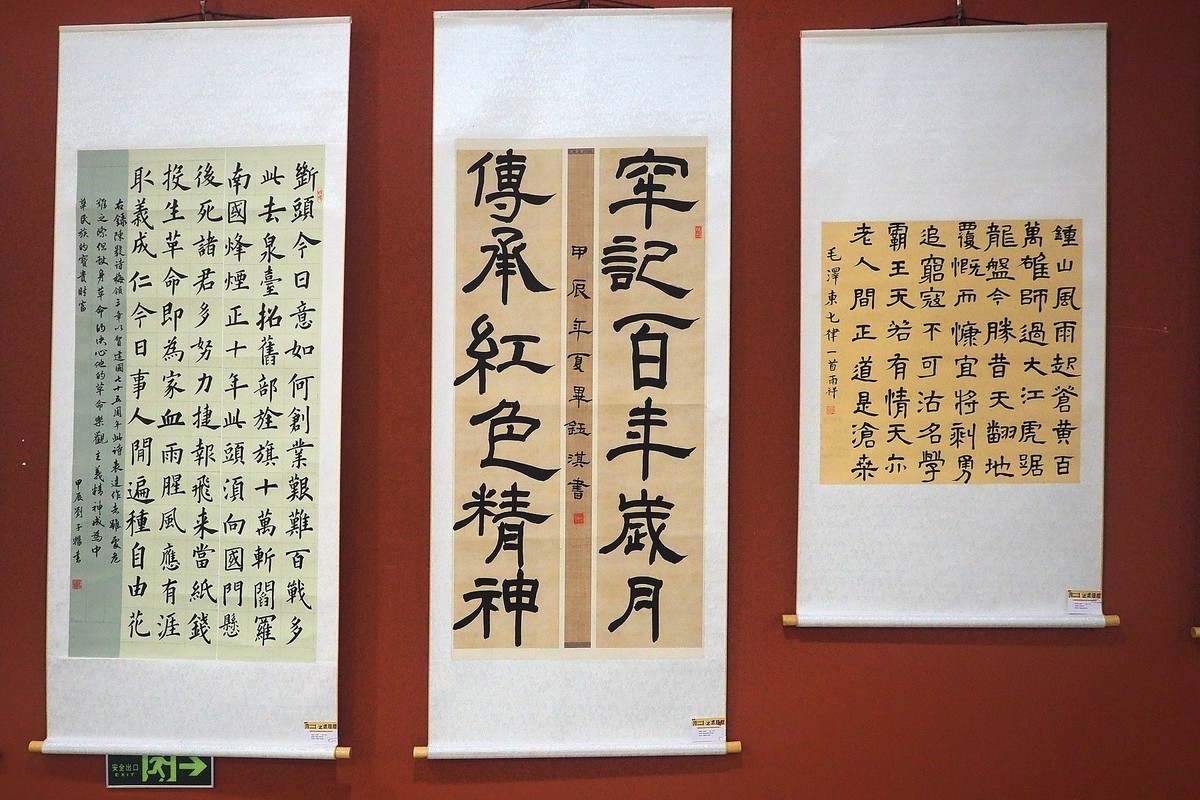 斷頭今日意如何創業艱難百戰多
此去泉臺招舊部旌旗十萬斬閻羅
南國烽煙正十年此頭須向國門懸
後死諸君多努力捷報飛来當紙錢
投生革命即為家血雨腥風應有涯
取義成仁今日事人間遍種自由花
右錄陳毅詩梅嶺三章以賀建國七十五周年此詩表達作者雖處危
難之際但獻身革命的决心他的革命樂觀主義精神成為中
華民族的寶貴財富
甲辰劉子書
牢記百年歲月
甲辰年夏畢鈺淇書
傳承紅色精神
鍾山風雨起蒼黄百
萬雄師過大江虎踞
龍盤今勝昔天翻地
覆慨而慷宜將剩勇
追窮寇不可沽名學
霸王天若有情天亦
老人間正道是滄桑
毛澤東七律一首雨祥
安全出口
EXIT